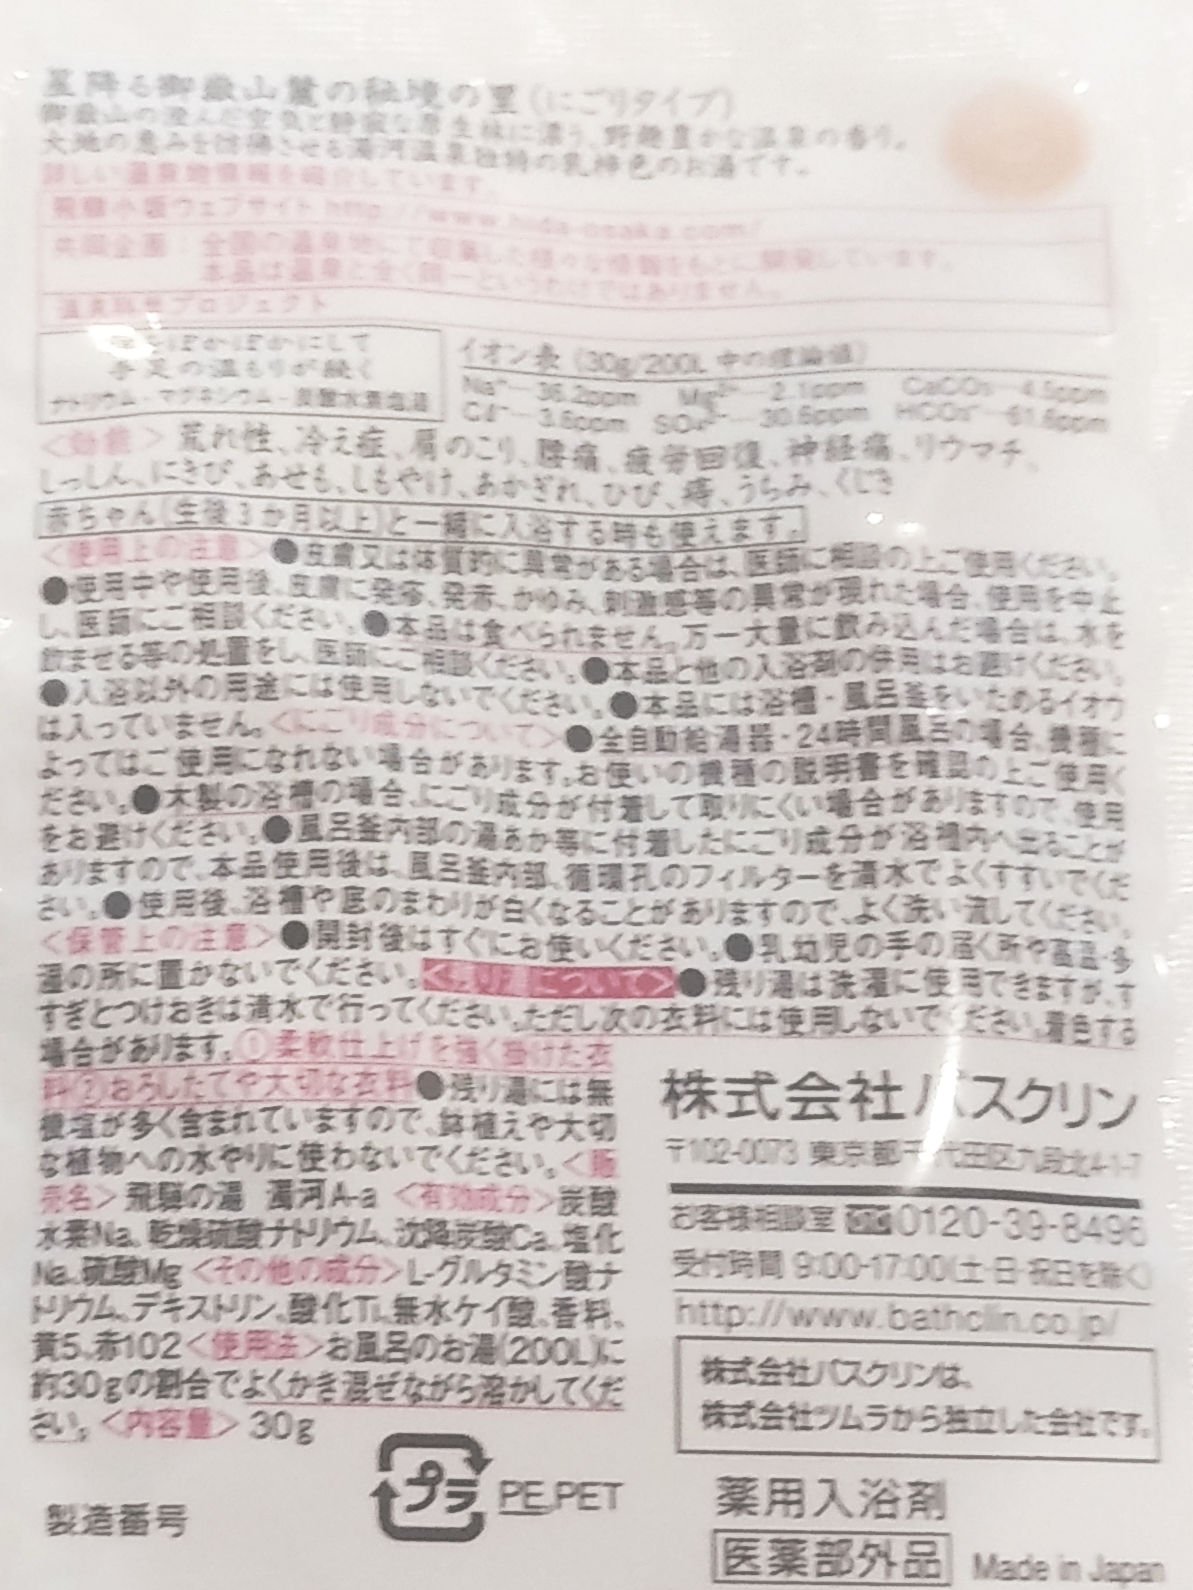 星降る御嶽山麓の秘境の里(にごりタイプ)
御嶽山の澄んだ空気と静寂な原生林に漂う、野趣豊かな温泉の香り。
大地の恵みを彷彿させる濁河温泉独特の乳褐色のお湯です。
詳しい温泉地情報を紹介しています。
飛騨小坂ウェブサイト http://www.hida-osaka.com/
共同企画:全国の温泉地にて収集した様々な情報をもとに開発しています。
本品は温泉と全く同一というわけではありません。
温泉科学プロジェクト
ぽかぽかにして
手足の温もりが続く
ナトリウム・マグネシウム-炭酸水素塩温
イオン表 (30g/200L 中の理論値)
Na⁺…36.2ppm Mg²⁺…2.1ppm CaCO₃…4.5ppm
Cl⁻…3.6ppm SO₄²⁻…30.6ppm HCO₃⁻…61.6ppm
<効能> 荒れ性、冷え症、肩のこり、腰痛、疲労回復、神経痛、リウマチ、
しっしん、にきび、あせも、しもやけ、あかぎれ、ひび、痔、うちみ、くじき
赤ちゃん(生後3か月以上)と一緒に入浴する時も使えます。
<使用上の注意>●皮膚又は体質的に異常がある場合は、医師に相談の上ご使用ください。
●使用中や使用後、皮膚に発疹、発赤、かゆみ、刺激感等の異常が現れた場合、使用を中止
し、医師にご相談ください。●本品は食べられません。万一大量に飲み込んだ場合は、水を
飲ませる等の処置をし、医師にご相談ください。●本品と他の入浴剤の併用はお避けください。
●入浴以外の用途には使用しないでください。●本品には浴槽・風呂釜をいためるイオウ
は入っていません。<にごり成分について>●全自動給湯器・24時間風呂の場合、機種に
よってはご使用になれない場合があります。お使いの機種の説明書を確認の上ご使用く
ださい。●木製の浴槽の場合、にごり成分が付着して取りにくい場合がありますので、使用
をお避けください。●風呂釜内部の湯あか等に付着したにごり成分が浴槽内へ出ることが
ありますので、本品使用後は、風呂釜内部、循環孔のフィルターを清水でよくすすいでくだ
さい。●使用後、浴槽や底のまわりが白くなることがありますので、よく洗い流してください。
<保管上の注意>●開封後はすぐにお使いください。●乳幼児の手の届く所や高温・多
湿の所に置かないでください。<残り湯について>●残り湯は洗濯に使用できますが、す
すぎとつけおきは清水で行ってください。ただし次の衣料には使用しないでください。着色する
場合があります。①柔軟仕上げを強く掛けた衣
料②おろしたてや大切な衣料●残り湯には無
機塩が多く含まれていますので、鉢植えや大切
な植物への水やりに使わないでください。<販
売名>飛騨の湯 濁河A-a <有効成分>炭酸
水素Na、乾燥硫酸ナトリウム、沈降炭酸Ca、塩化
Na、硫酸Mg<その他の成分>L-グルタミン酸ナ
トリウム、デキストリン、酸化Ti、無水ケイ酸、香料、
黄5、赤102<使用法>お風呂のお湯(200L)に
約30gの割合でよくかき混ぜながら溶かしてくだ
さい。<内容量> 30g
株式会社バスクリン
〒102-0073 東京都千代田区九段北4-1-7
お客様相談室 0120-39-8496
受付時間 9:00-17:00(土・日・祝日を除く)
http://www.bathclin.co.jp/
株式会社バスクリンは、
株式会社ツムラから独立した会社です。
製造番号
プラ PE,PET
薬用入浴剤
医薬部外品 Made in Japan